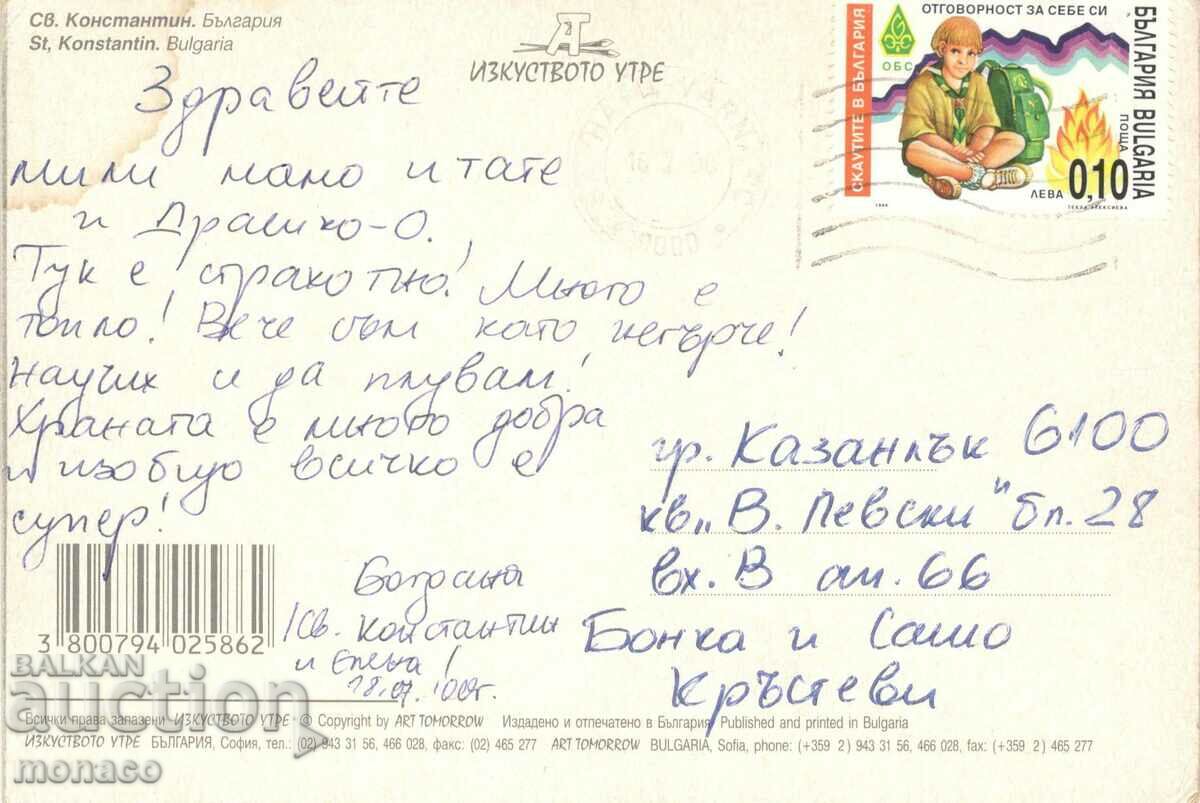 Св. Константин. България
St, Konstantin. Bulgaria
ИЗКУСТВОТО УТРЕ
ОТГОВОРНОСТ ЗА СЕБЕ СИ
СКАУТИТЕ В БЪЛГАРИЯ
ОБС
БЪЛГАРИЯ BULGARIA
ПОЩА
ЛЕВА 0,10
ТЕКЛА АЛЕКСИЕВА
Здравейте
мили мамо и тате
и Драгико-О.
Тук е страхотно! Много е
топло! Вече съм като негърче!
Научих и да плувам!
Храната е много добра
и изобщо всичко е
супер!
Богдана
/Св. Константин
и Елена/
18.07.'00г.
гр. Казанлък 6100
кв. „В. Левски" бл. 28
вх. В ап. 66
Бонка и Сашо
Кръстеви
3 800794 025862
BALKAN
auction
monaco
Всички права запазени ИЗКУСТВОТО УТРЕ © Copyright by ART TOMORROW Издадено и отпечатено в България, Published and printed in Bulgaria
ИЗКУСТВОТО УТРЕ БЪЛГАРИЯ, София, тел.: (02) 943 31 56, 466 028, факс: (02) 465 277 ART TOMORROW BULGARIA, Sofia, phone: (+359 2) 943 31 56, 466 028, fax: (+359 2) 465 277